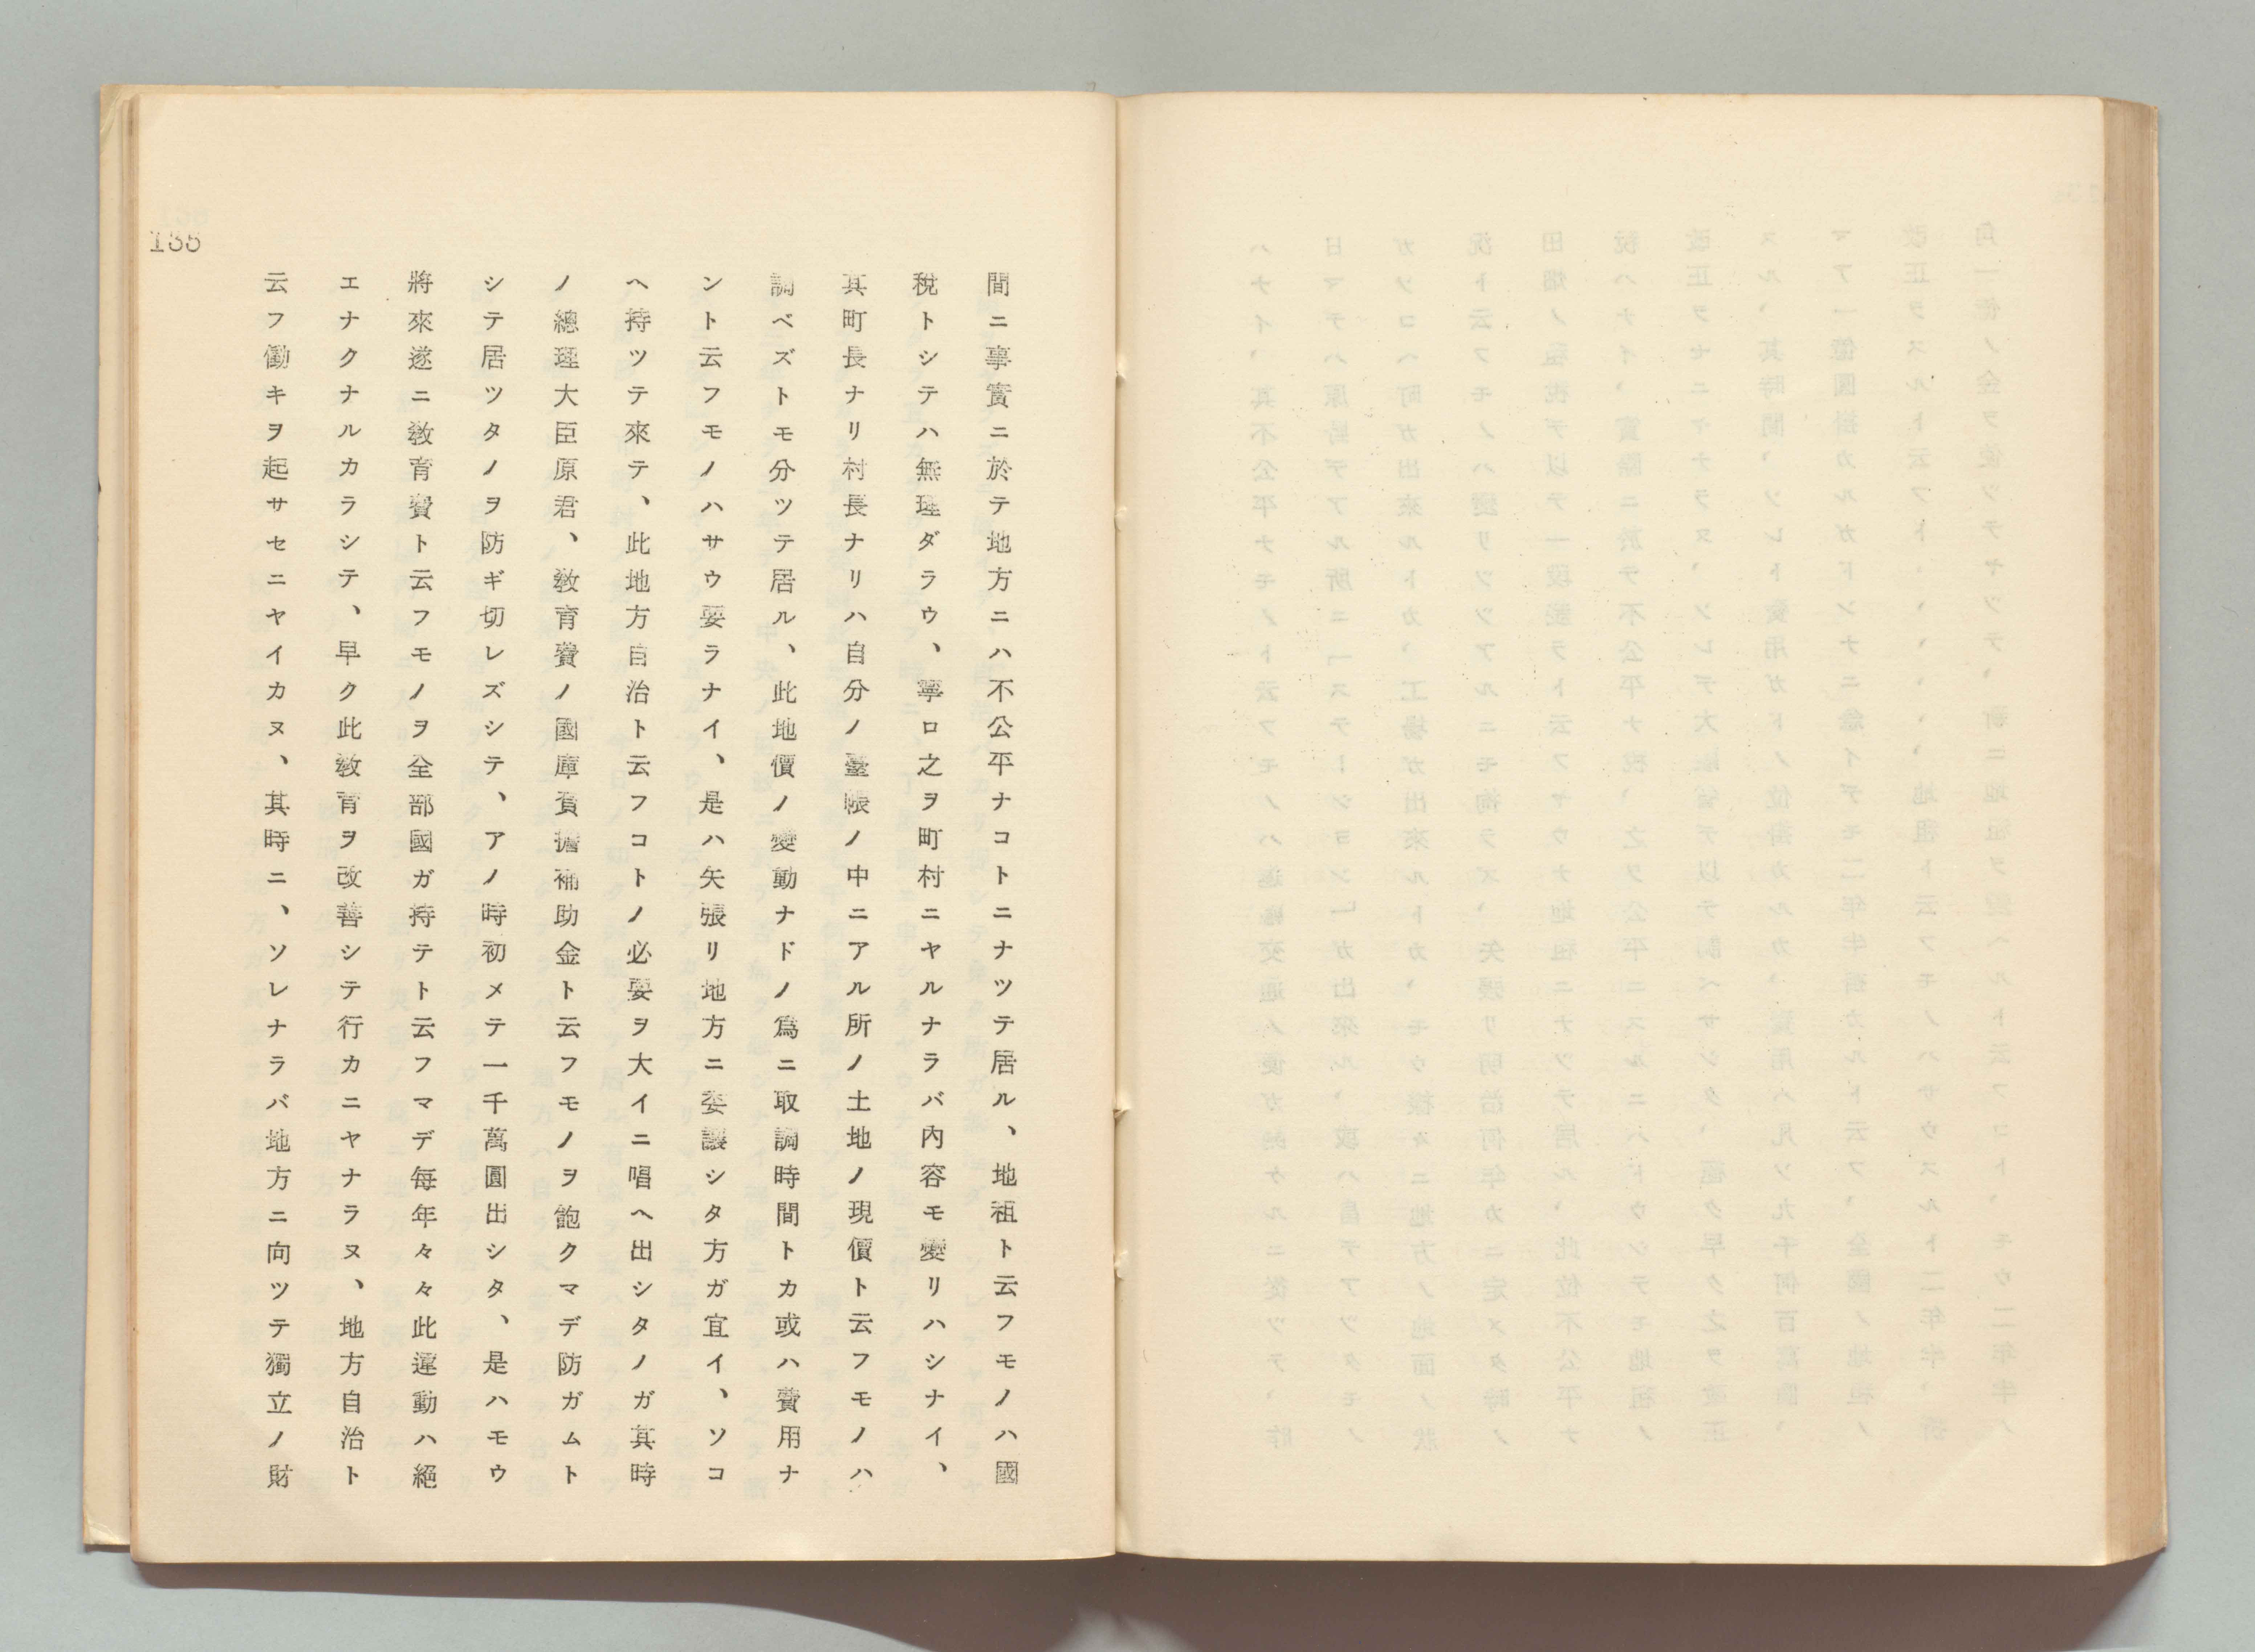 135
間ニ事實ニ於テ地方ニハ不公平ナコトニナツテ居ル、地祖ト云フモノハ國
稅トシテハ無理ダラウ、寧ロ之ヲ町村ニヤルナラバ內容モ變リハシナイ、
其町長ナリ村長ナリハ自分ノ臺帳ノ中ニアル所ノ土地ノ現價ト云フモノハ
調ベズトモ分ツテ居ル、此地價ノ變動ナドノ爲ニ取調時間トカ或ハ費用ナ
ント云フモノハサウ要ラナイ、是ハ矢張リ地方ニ委讓シタ方ガ宜イ、ソコ
ヘ持ツテ來テ、此地方自治ト云フコトノ必要ヲ大イニ唱ヘ出シタノガ其時
ノ總理大臣原君、敎育費ノ國庫負擔補助金ト云フモノヲ飽クマデ防ガムト
シテ居ツタノヲ防ギ切レズシテ、アノ時初メテ一千萬圓出シタ、是ハモウ
將來遂ニ敎育費ト云フモノヲ全部國ガ持テト云フマデ每年々々此運動ハ絕
エナクナルカラシテ、早ク此敎育ヲ改善シテ行カニヤナラヌ、地方自治ト
云フ働キヲ起サセニヤイカヌ、其時ニ、ソレナラバ地方ニ向ツテ獨立ノ財